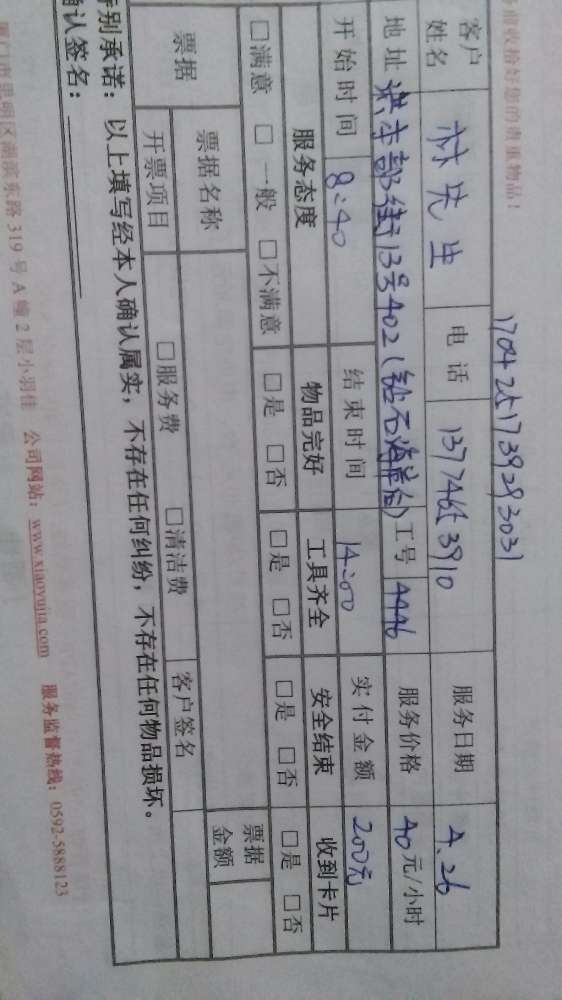 好您的贵重物品！
1704251739293031
客户姓名 林先生 电话 服务日期 4.26
地址 洪本部街13号402(钻石海岸 工号 4446 服务价格 40元/小时
开始时间 8:40 结束时间 14:00 实付金额 200元
服务态度 物品完好 工具齐全 安全结束 收到卡片
□满意 □一般 □不满意 □是 □否 □是 □否 □是 □否 □是 □否
票据 票据名称 票据金额
开票项目 □服务费 □清洁费 客户签名
别承诺：以上填写经本人确认属实，不存在任何纠纷，不存在任何物品损坏。
确认签名：
厦门市思明区湖滨东路319号A幢2层小羽佳 公司网站：www.xiaoyujia.com 服务监督热线：0592-5888123